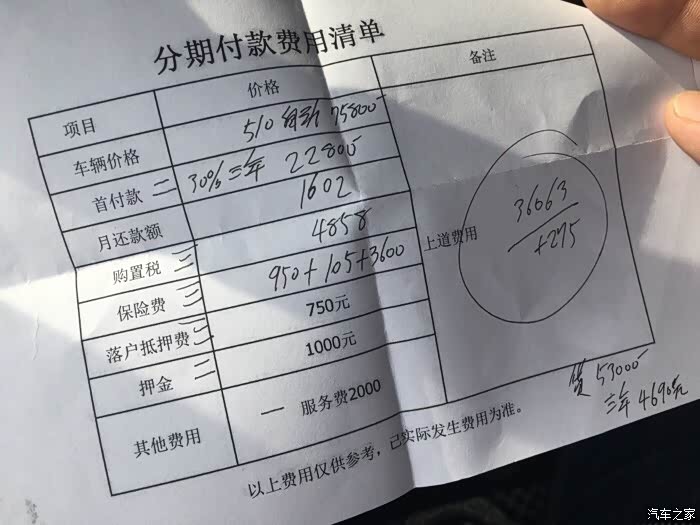 分期付款费用清单
项目 价格 备注
车辆价格 510 自动 75800
首付款 二 30% 三年 22800
月还款额 1602
购置税 三 4858
保险费 三 950+105+3600
落户抵押费 三 750元
押金 二 1000元
其他费用 一 服务费2000
上道费用
36063
+275
贷 53000
三年 4690元
以上费用仅供参考，己实际发生费用为准。
汽车之家